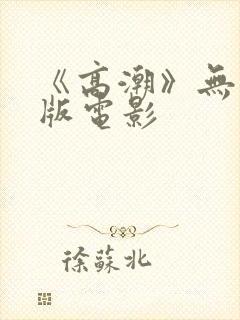 《高潮》無
版電影
徐蘇北